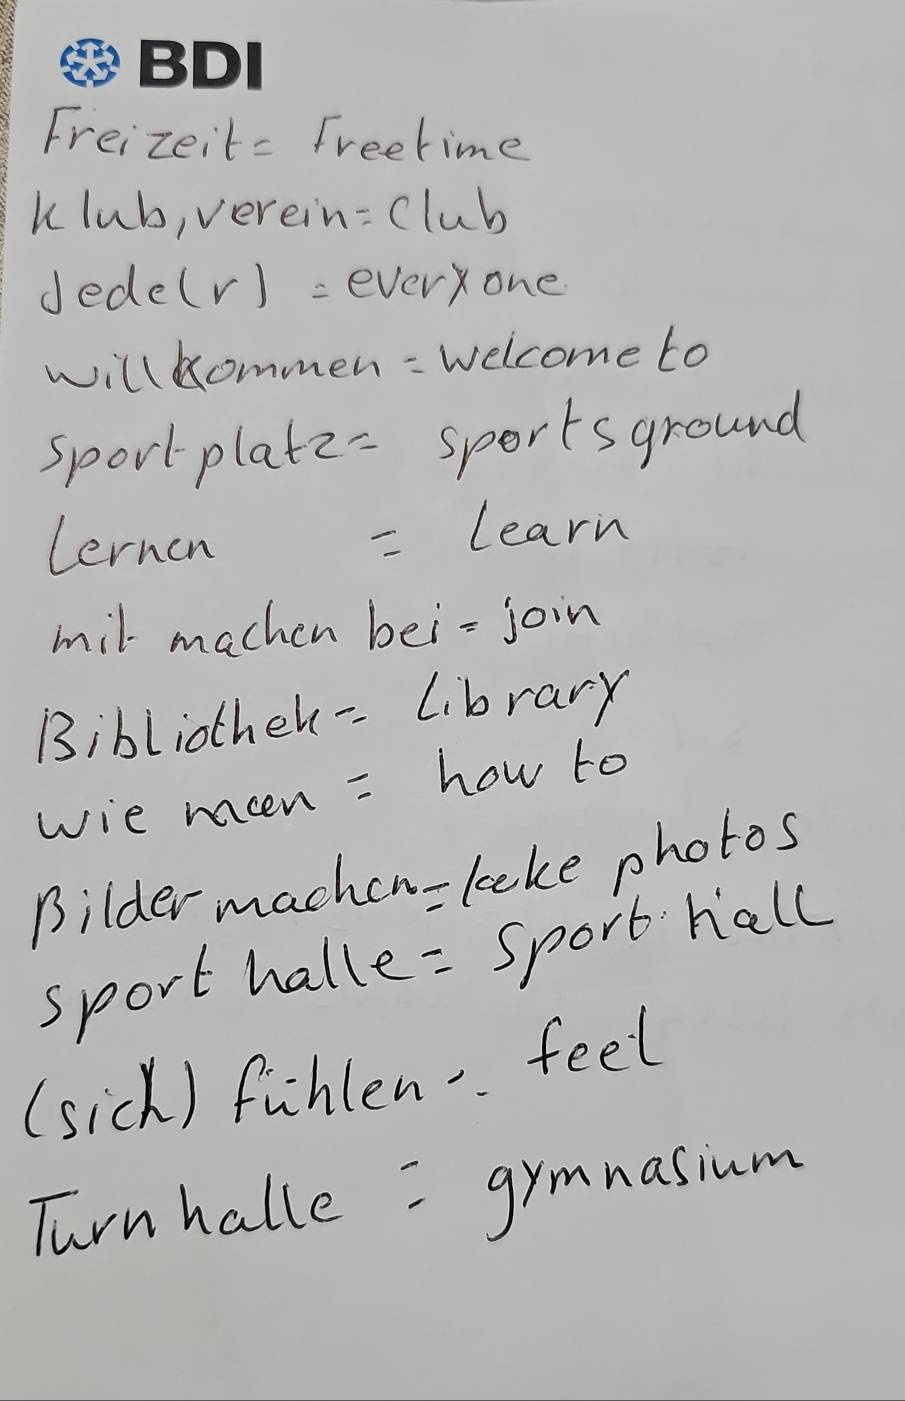 BDI
Freizeit = Freetime
Klub, verein = Club
Jede(r) = everyone
willkommen = welcome to
sportplatz = sportsground
Lernen = Learn
mit machen bei = join
Bibliothek = Library
wie man = how to
Bilder machen = take photos
sport halle = Sport hall
(sich) fühlen = feel
Turnhalle = gymnasium